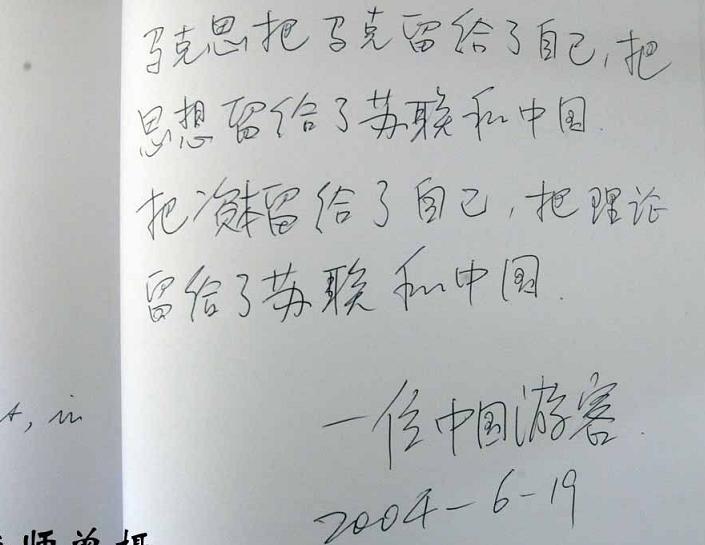 马克思把马克留给了自己,把
思想留给了苏联和中国.
把资本留给了自己,把理论
留给了苏联和中国.
一位中国游客.
2004-6-19
, in
师曾摄